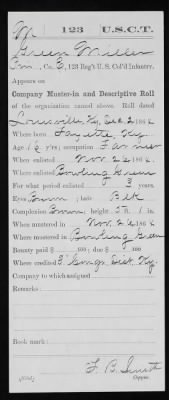 M 123 U.S.C.T.
Green Miller
Co. B, 123 Reg't U. S. Col'd Infantry.
Appears on
Company Muster-in and Descriptive Roll
of the organization named above. Roll dated
Louisville, Ky, Dec. 2, 1864
Where born Fayette, Ky.
Age 18 y'rs; occupation Farmer
When enlisted Nov. 26, 1864
Where enlisted Bowling Green
For what period enlisted 3 years.
Eyes Brown; hair Blk
Complexion Brown; height 5 ft. 1 in.
When mustered in Nov. 26, 1864
Where mustered in Bowling Green
Bounty paid $ 100; due $ 100
Where credited 3" Cong. Dist. Ky.
Company to which assigned
Remarks:
Book mark:
Copyist.